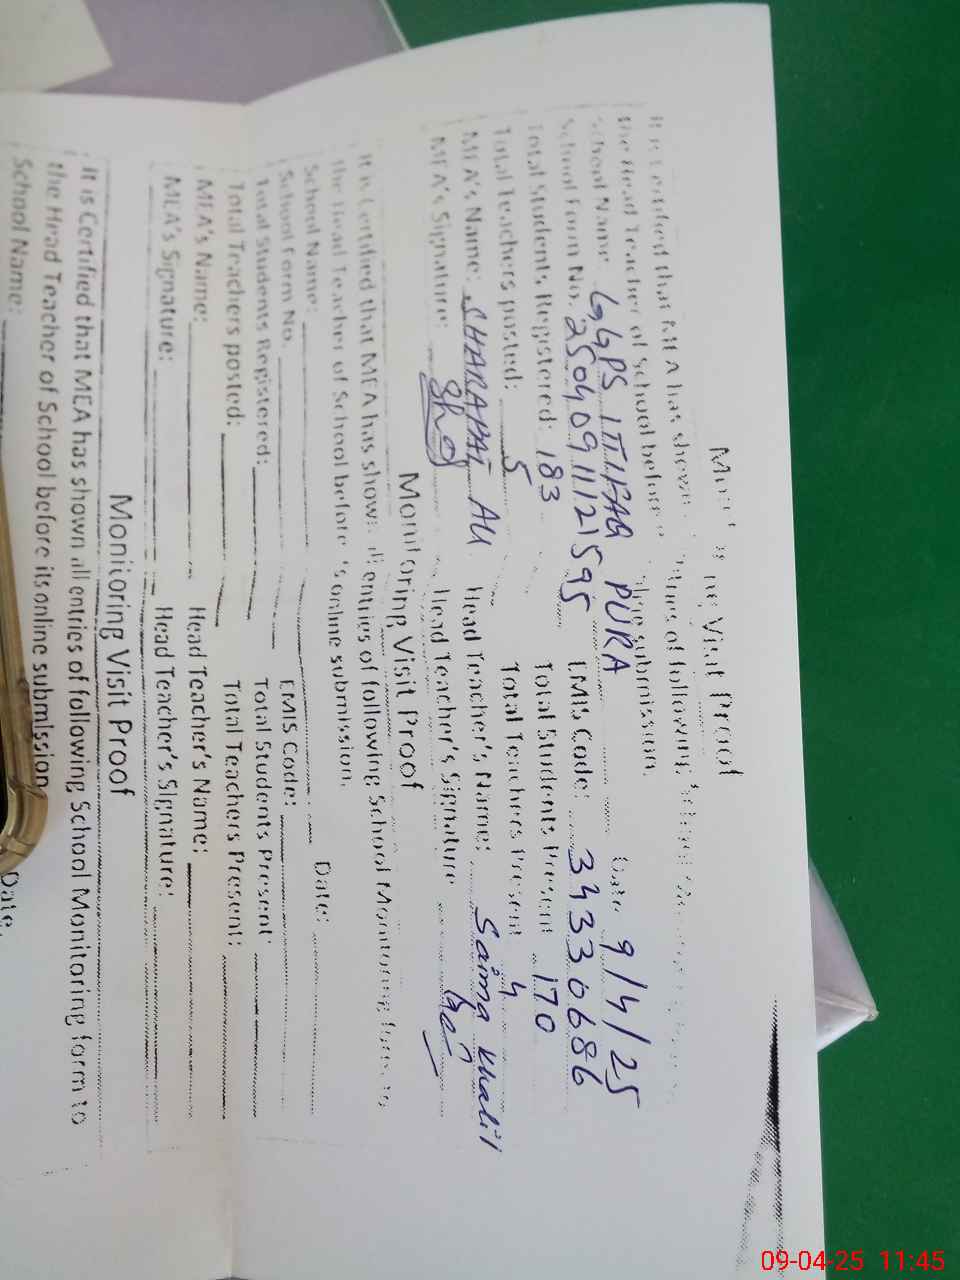 Monitoring Visit Proof
It is Certified that MEA has shown entries of following School Monitoring
the Head Teacher of School before online submission.
School Name GGPS ITIFAQ PURA Date 9/4/25
School Form No. 25040911121595 EMIS Code: 34330686
Total Students Registered: 183 Total Students Present 170
Total Teachers posted: 5 Total Teachers Present 4
MEA's Name: SHARAFAT ALI Head Teacher's Name: Saima Khalil
MEA's Signature: Head Teacher's Signature
Monitoring Visit Proof
It is Certified that MEA has shown all entries of following School Monitoring form to
the Head Teacher of School before its online submission.
School Name: Date:
School Form No. EMIS Code:
Total Students Registered: Total Students Present:
Total Teachers posted: Total Teachers Present:
MEA's Name: Head Teacher's Name:
MEA's Signature: Head Teacher's Signature:
Monitoring Visit Proof
It is Certified that MEA has shown all entries of following School Monitoring form to
the Head Teacher of School before its online submission
School Name: Date.
09-04-25 11:45